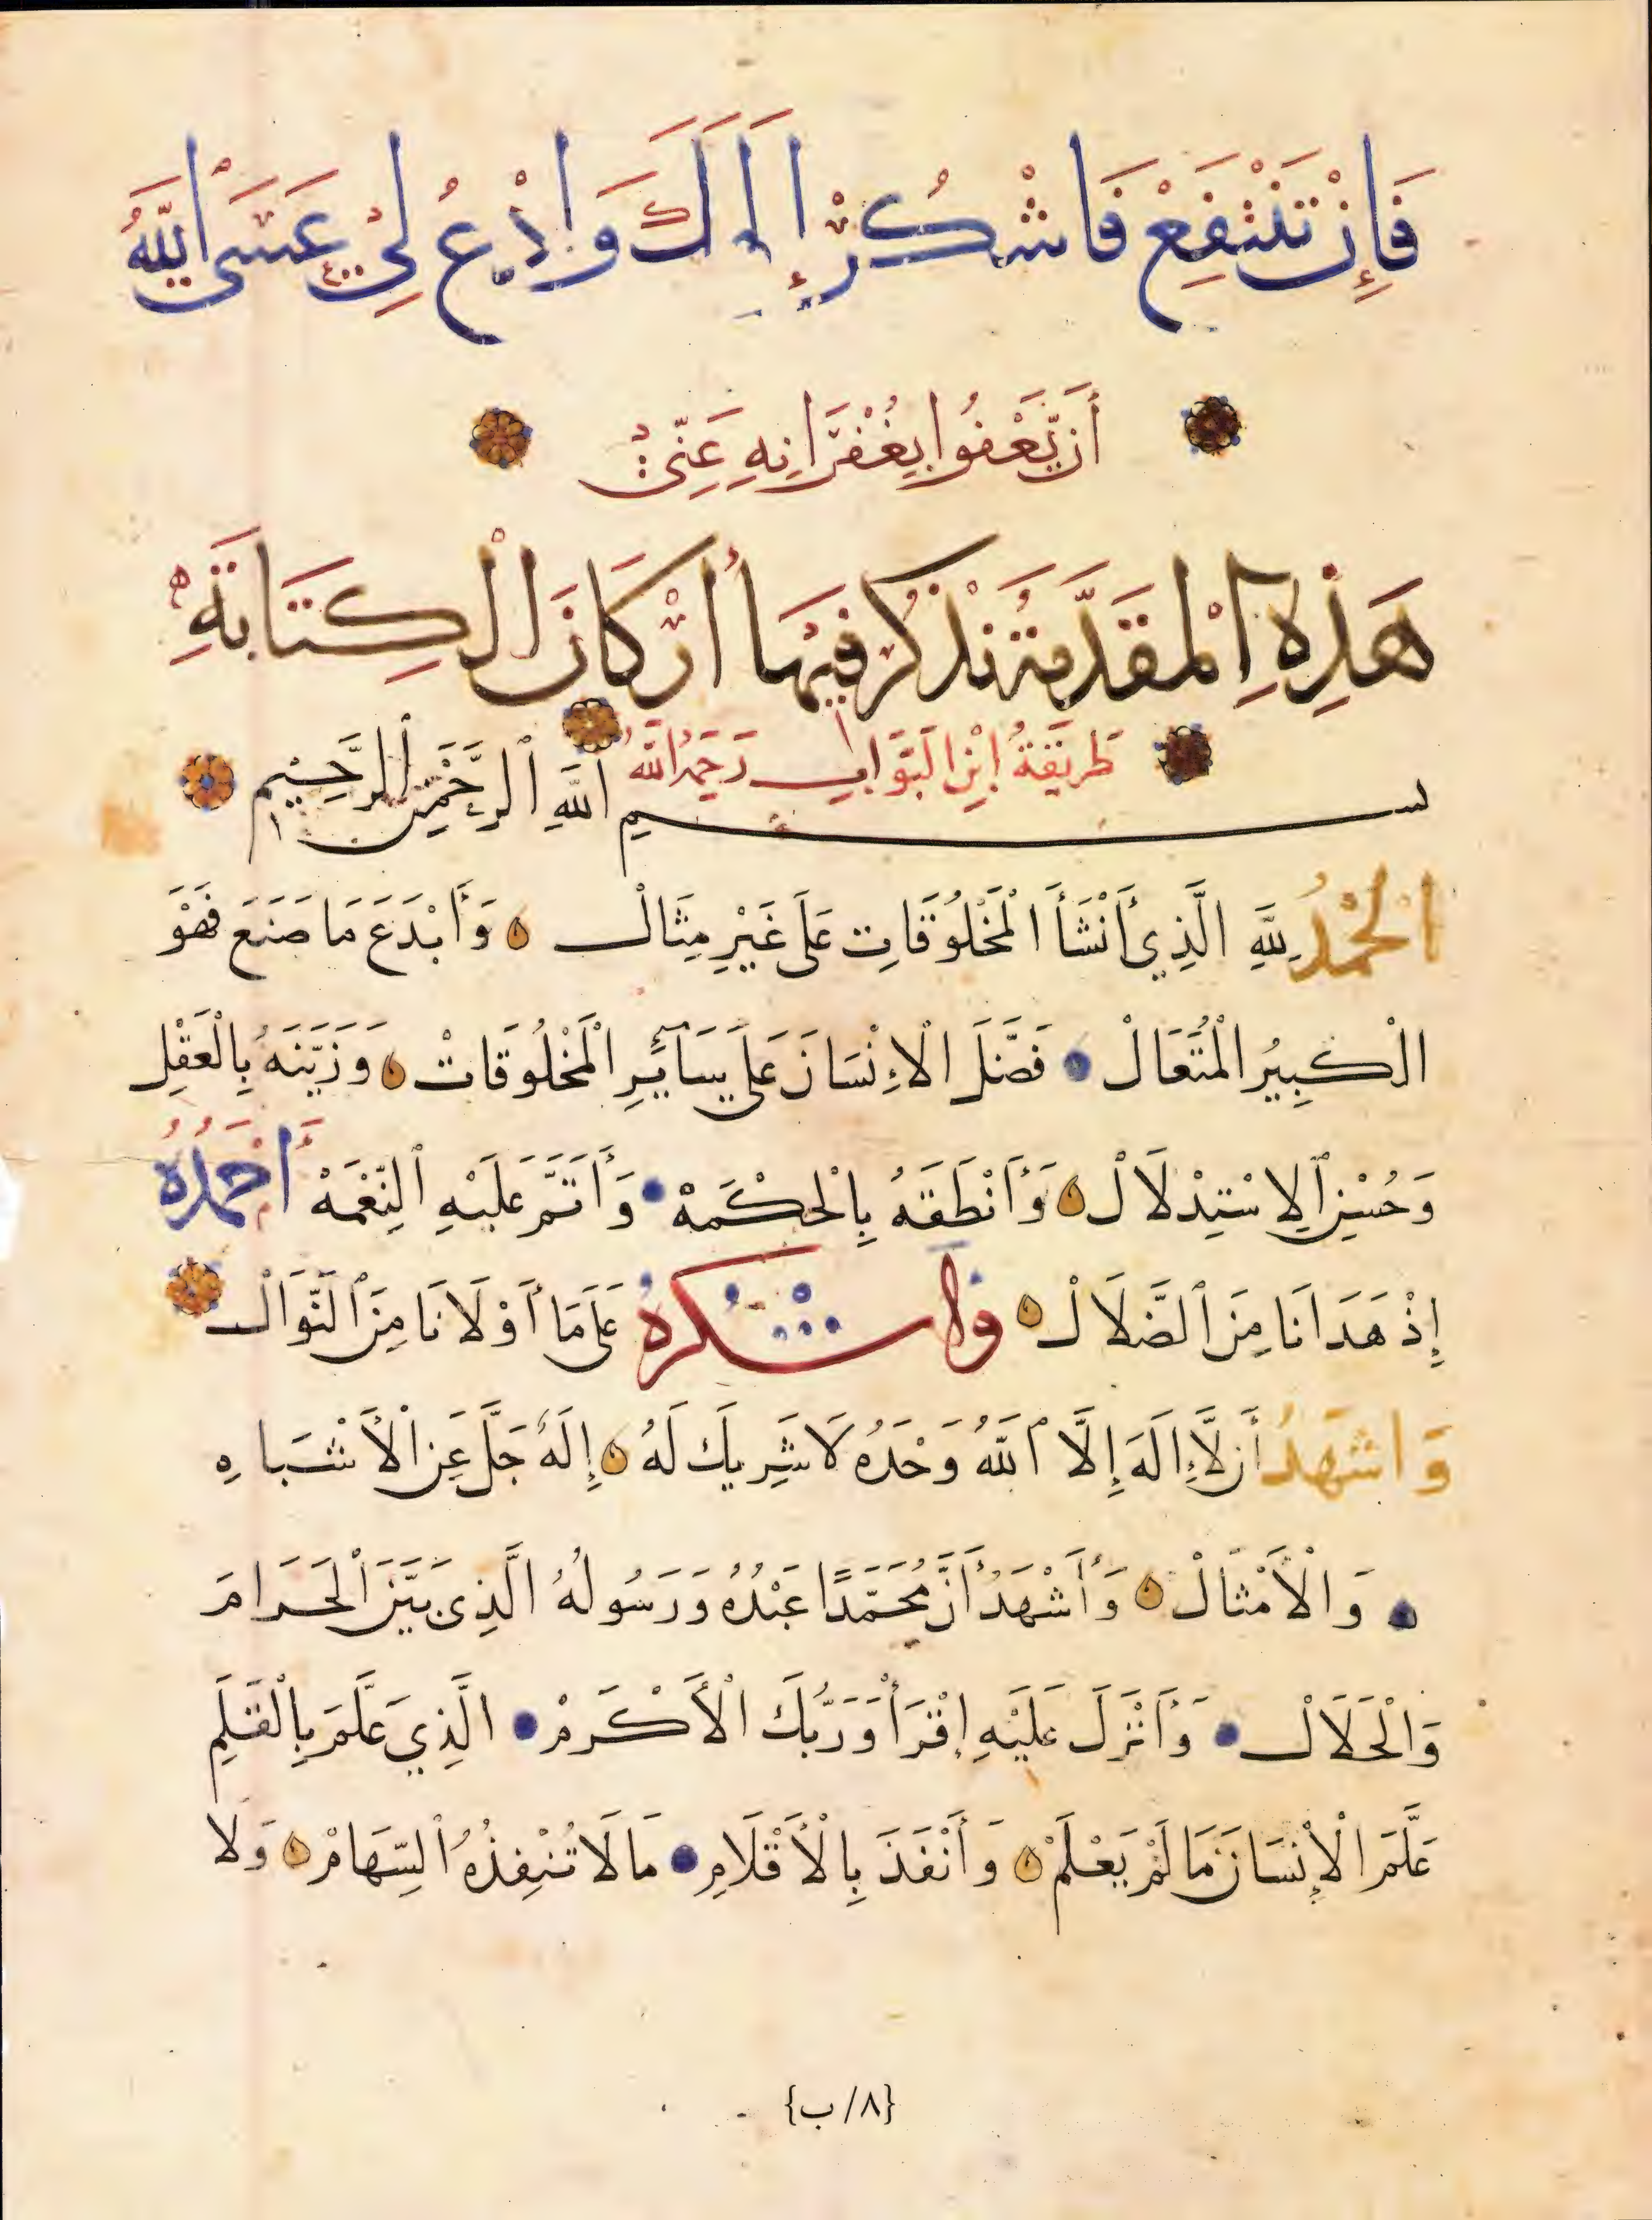 فَإِنْ تَنْتَفِعْ فَاشْكُرْ إِلَهَكَ وَادْعُ لِيْ عَسَى اللَّهُ
أَنْ يَّعْفُوا بِغُفْرَانِهِ عَنِّيْ
هَذِهِ الْمُقَدِّمَةُ نَذْكُرُ فِيْهَا أَرْكَانَ الْكِتَابَةِ
طَرِيقَةُ ابْنِ الْبَوَّابِ رَحِمَهُ اللَّهُ
بسم اللَّهِ الرَّحْمَنِ الرَّحِيْمِ
الْحَمْدُ لِلَّهِ الَّذِي أَنْشَأَ الْمَخْلُوقَاتِ عَلَى غَيْرِ مِثَالْ وَأَبْدَعَ مَا صَنَعَ فَهْوَ
الْكَبِيرُ الْمُتَعَالْ فَضَّلَ الْإِنْسَانَ عَلَى سَآئِرِ الْمَخْلُوقَاتْ وَزَيَّنَهُ بِالْعَقْلِ
وَحُسْنِ الِاسْتِدْلَالْ وَأَنْطَقَهُ بِالْحِكْمَهْ وَأَتَمَّ عَلَيْهِ النِّعْمَهْ أَحْمَدُهُ
إِذْ هَدَانَا مِنَ الضَّلَالْ واشْكرهُ عَلَى مَا أَوْلَانَا مِنَ النَّوَالْ
وَاشهَدُ أَن لَّا إِلَهَ إِلَّا اللَّهُ وَحْدَهُ لَا شَرِيكَ لَهُ إِلَهٌ جَلَّ عَنِ الْأَشْبَاهِ
وَالْأَمْثَالْ وَأَشْهَدُ أَنَّ مُحَمَّدًا عَبْدُهُ وَرَسُولُهُ الَّذِى بَيَّنَ الْحَرَامَ
وَالْحَلَالْ وَأَنْزَلَ عَلَيْهِ إِقْرَأْ وَرَبُّكَ الْأَكْرَمْ الَّذِي عَلَّمَ بِالْقَلَمِ
عَلَّمَ الْإِنْسَانَ مَا لَمْ يَعْلَمْ وَأَنْفَذَ بِالْأَقْلَامِ مَا لَا تُنْفِذُهُ السِّهَامْ وَلا
{٨/ب}